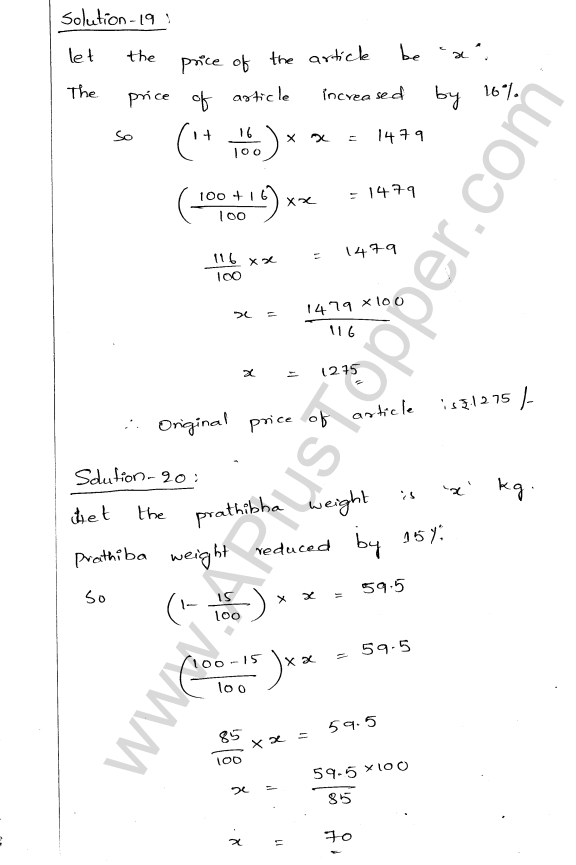 Solution-19:
let the price of the article be "x".
The price of article increased by 16%.
So (1 + 16/100) × x = 1479
((100 + 16)/100) × x = 1479
116/100 × x = 1479
x = (1479 × 100)/116
x = 1275
∴ Original price of article is ₹1275/-
Solution-20:
Let the prathibha weight is 'x' kg.
Prathiba weight reduced by 15%.
So (1 - 15/100) × x = 59.5
((100 - 15)/100) × x = 59.5
85/100 × x = 59.5
x = (59.5 × 100)/85
x = 70
www.APlusTopper.com